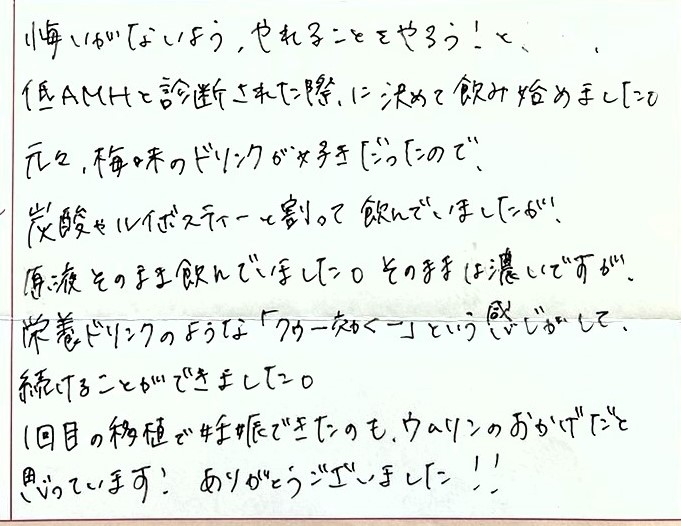 悔いがないよう、やれることをやろう!と、
低AMHと診断された際、に決めて飲み始めました。
元々、梅味のドリンクが好きだったので、
炭酸やルイボスティーと割って飲んでいましたが、
原液そのまま飲んでいました。そのままは濃いですが、
栄養ドリンクのような「クゥー効くー」という感じがして、
続けることができました。
1回目の移植で妊娠できたのも、ウムリンのおかげだと
思っています! ありがとうございました!!